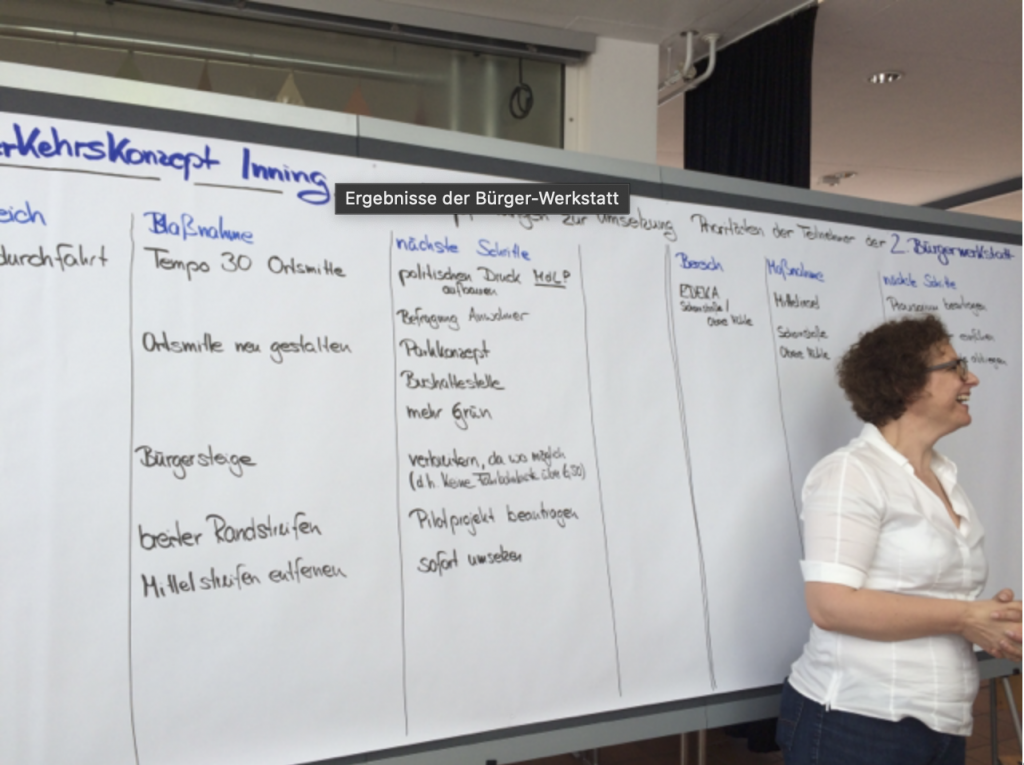 erkehrskonzept Inning
Ergebnisse der Bürger-Werkstatt
zur Umsetzung Prioritäten der Teilnehmer der 2. Bürgerwerkstatt
eich
Maßnahme
nächste Schritte
durchfahrt
Tempo 30 Ortsmitte
politischen Druck MdLP
aufbauen
Befragung Anwohner
Ortsmitte neu gestalten
Parkkonzept
Bushaltestelle
mehr Grün
Bürgersteige
verbreitern, da wo möglich
(d.h. keine Fahrbahnbreite über 6,50)
breiter Randstreifen
Pilotprojekt beantragen
Mittelstreifen entfernen
sofort umsetzen
Bereich
Maßnahme
nächste Schritte
EDEKA
Mittelinsel
beantragen
Schornstraße/
Obere Mühle
Schornstraße
einführen
Obere Mühle